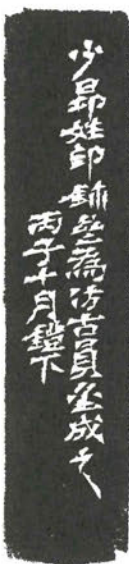 少昂姓印為仿古員成之
丙子十月鐙下